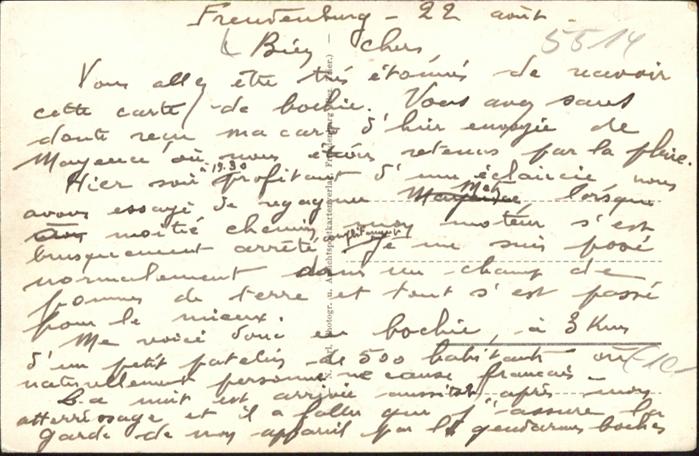 Freudenburg - 22 août -
Bien chers
5514
Vous allez être très étonnés de recevoir
cette carte de bochie. Vous avez sans
doute reçu ma carte d'hier envoyée de
Mayence où nous étions retenus par la pluie.
Hier soir à 19.30 profitant d'une éclaircie nous
avons essayé de regagner Metz, lorsque
à moitié chemin mon moteur s'est
brusquement arrêté complètement. Je me suis posé
normalement dans un champ de
pommes de terre et tout s'est passé
pour le mieux.
Me voici donc en bochie, à 3 Kms
d'un petit patelin de 500 habitants où
naturellement personne ne cause français -
La nuit est arrivée aussitôt après mon
atterrissage et il a fallu que j'assure la
garde de mon appareil par les gendarmes boches